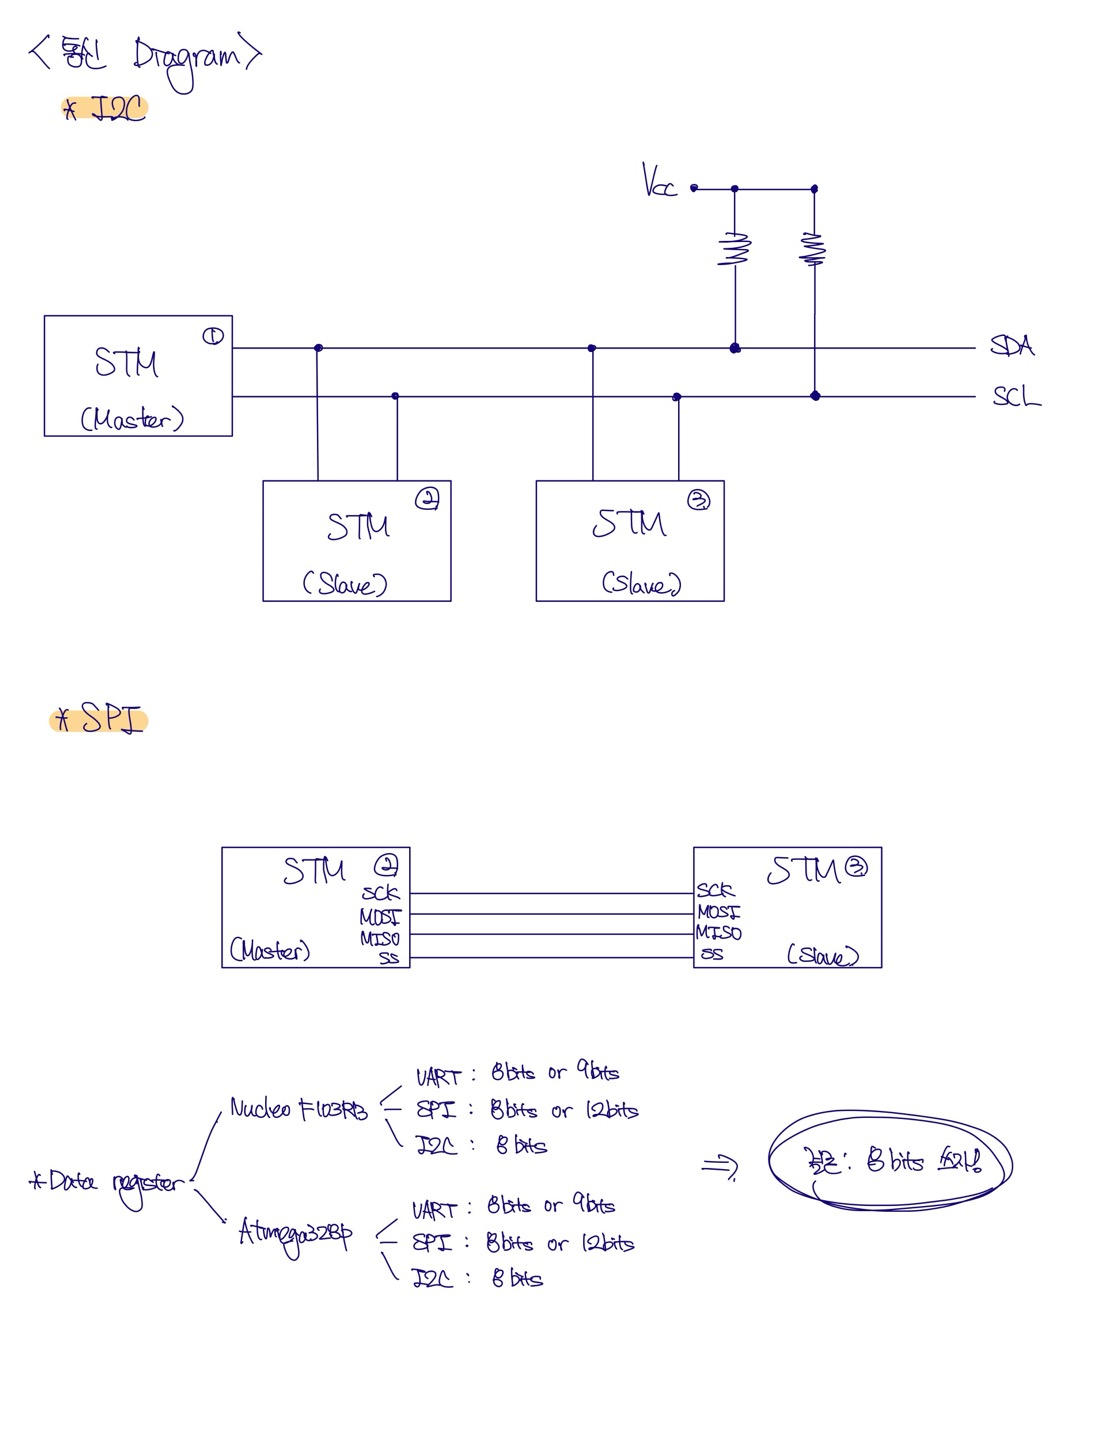 <통신 Diagram>
* I2C
Vcc
STM ①
(Master)
SDA
SCL
STM ②
(Slave)
STM ③
(Slave)
* SPI
STM ②
SCK
MOSI
MISO
SS
(Master)
STM ③
SCK
MOSI
MISO
SS
(Slave)
* Data register
Nucleo F103RB
UART : 8bits or 9bits
SPI : 8bits or 12bits
I2C : 8bits
Atmega328p
UART : 8bits or 9bits
SPI : 8bits or 12bits
I2C : 8bits
⇒ 결론: 8bits